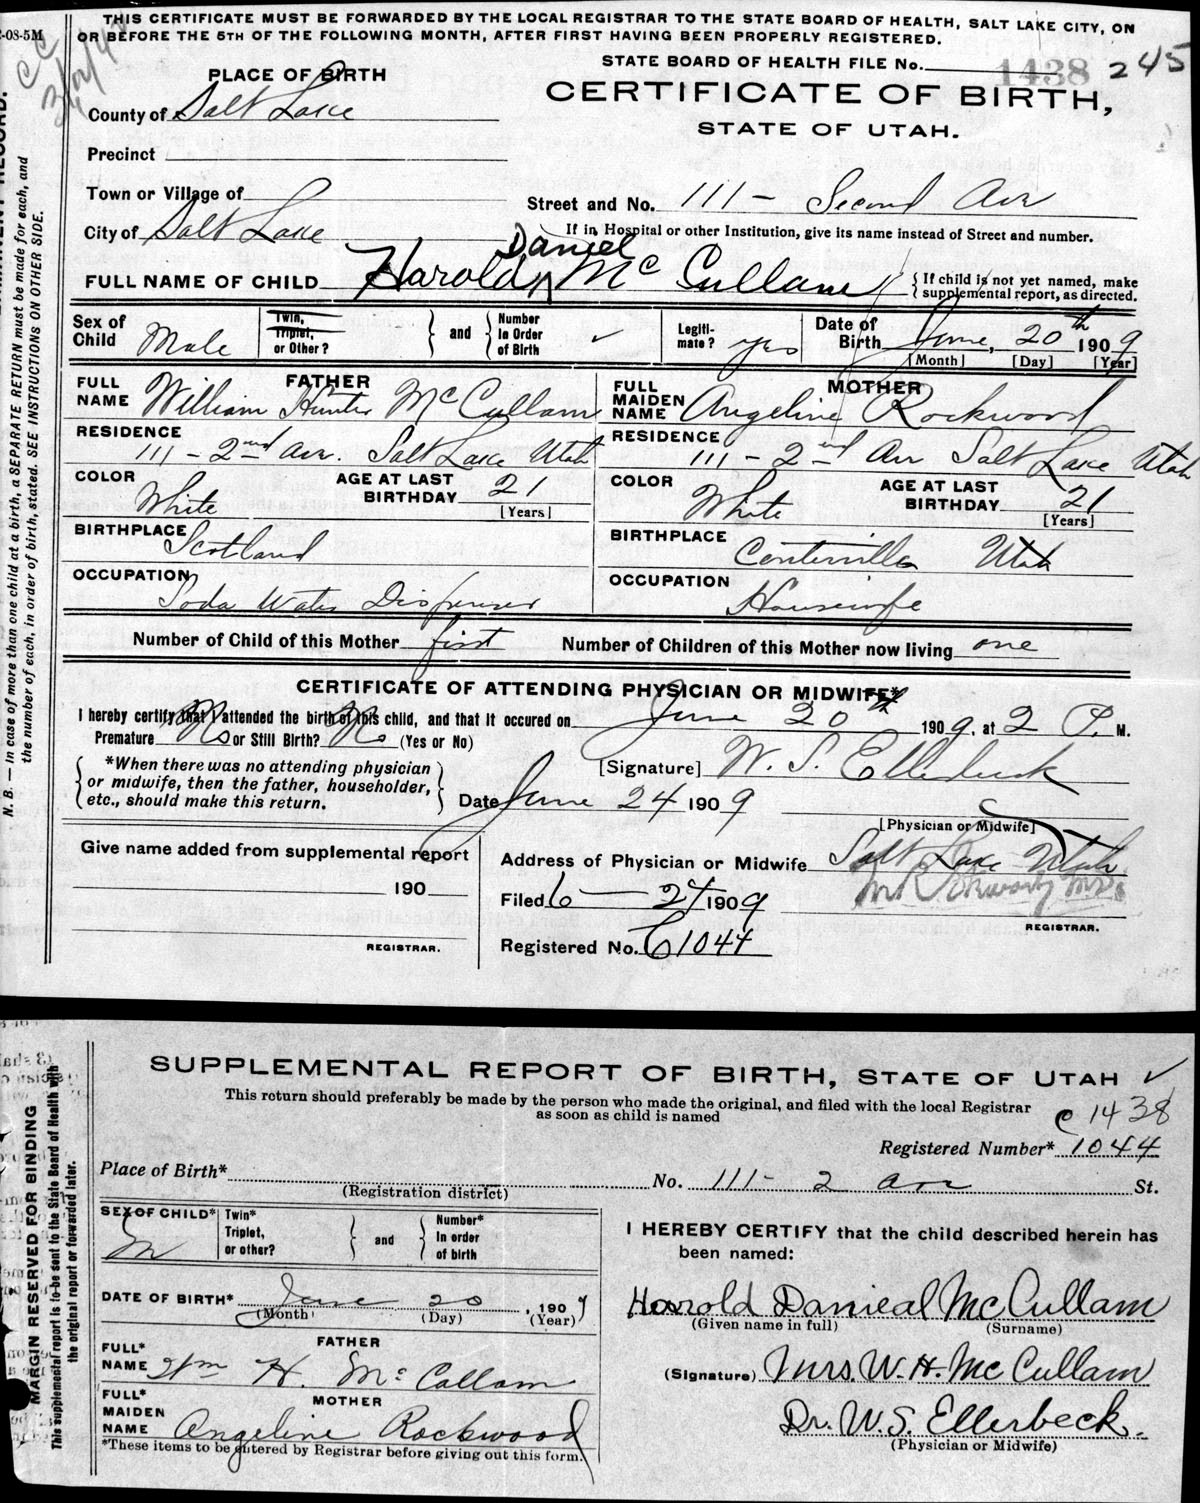 THIS CERTIFICATE MUST BE FORWARDED BY THE LOCAL REGISTRAR TO THE STATE BOARD OF HEALTH, SALT LAKE CITY, ON
OR BEFORE THE 5TH OF THE FOLLOWING MONTH, AFTER FIRST HAVING BEEN PROPERLY REGISTERED.
-08-5M
STATE BOARD OF HEALTH FILE No. 1438 245
PLACE OF BIRTH
CERTIFICATE OF BIRTH,
STATE OF UTAH.
County of Salt Lake
Precinct
Town or Village of
Street and No. 111 - Second Ave
City of Salt Lake
If in Hospital or other Institution, give its name instead of Street and number.
Daniel
FULL NAME OF CHILD Harold McCullam
If child is not yet named, make
supplemental report, as directed.
Sex of Child Male
Twin, Triplet, or Other?
and
Number In Order of Birth
Legiti-mate? yes
Date of Birth June, 20th 1909
[Month] [Day] [Year]
FATHER
FULL NAME William Hunter McCullam
RESIDENCE 111 - 2nd Ave. Salt Lake Utah
COLOR White
AGE AT LAST BIRTHDAY 21
[Years]
BIRTHPLACE Scotland
OCCUPATION Soda Water Dispenser
MOTHER
FULL MAIDEN NAME Angeline Rockwood
RESIDENCE 111 - 2nd Ave Salt Lake Utah
COLOR White
AGE AT LAST BIRTHDAY 21
[Years]
BIRTHPLACE Centerville Utah
OCCUPATION Housewife
Number of Child of this Mother first Number of Children of this Mother now living one
CERTIFICATE OF ATTENDING PHYSICIAN OR MIDWIFE*
I hereby certify that I attended the birth of this child, and that it occured on June 20th 1909, at 2 P. M.
Premature No or Still Birth? No (Yes or No)
*When there was no attending physician
or midwife, then the father, householder,
etc., should make this return.
[Signature] W. S. Ellerbeck
Date June 24 1909
[Physician or Midwife]
Give name added from supplemental report
190
REGISTRAR.
Address of Physician or Midwife Salt Lake Utah
Filed 6 - 27 1909
REGISTRAR.
Registered No. C1044
N. B. — In case of more than one child at a birth, a SEPARATE RETURN must be made for each, and
the number of each, in order of birth, stated. SEE INSTRUCTIONS ON OTHER SIDE.
SUPPLEMENTAL REPORT OF BIRTH, STATE OF UTAH
This return should preferably be made by the person who made the original, and filed with the local Registrar
as soon as child is named
C 1438
Registered Number* 1044
Place of Birth* No. 111- 2 ave St.
(Registration district)
SEX OF CHILD* M
Twin* Triplet, or other?
and
Number* In order of birth
DATE OF BIRTH* June 20, 1909
(Month) (Day) (Year)
FATHER
FULL* NAME Wm H. McCullam
MOTHER
FULL* MAIDEN NAME Angeline Rockwood
*These items to be entered by Registrar before giving out this form.
I HEREBY CERTIFY that the child described herein has
been named:
Harold Danieal McCullam
(Given name in full) (Surname)
(Signature) Mrs. W. H. McCullam
Dr. W. S. Ellerbeck.
(Physician or Midwife)
MARGIN RESERVED FOR BINDING
This supplemental report is to be sent to the State Board of Health with
the original report or forwarded later.